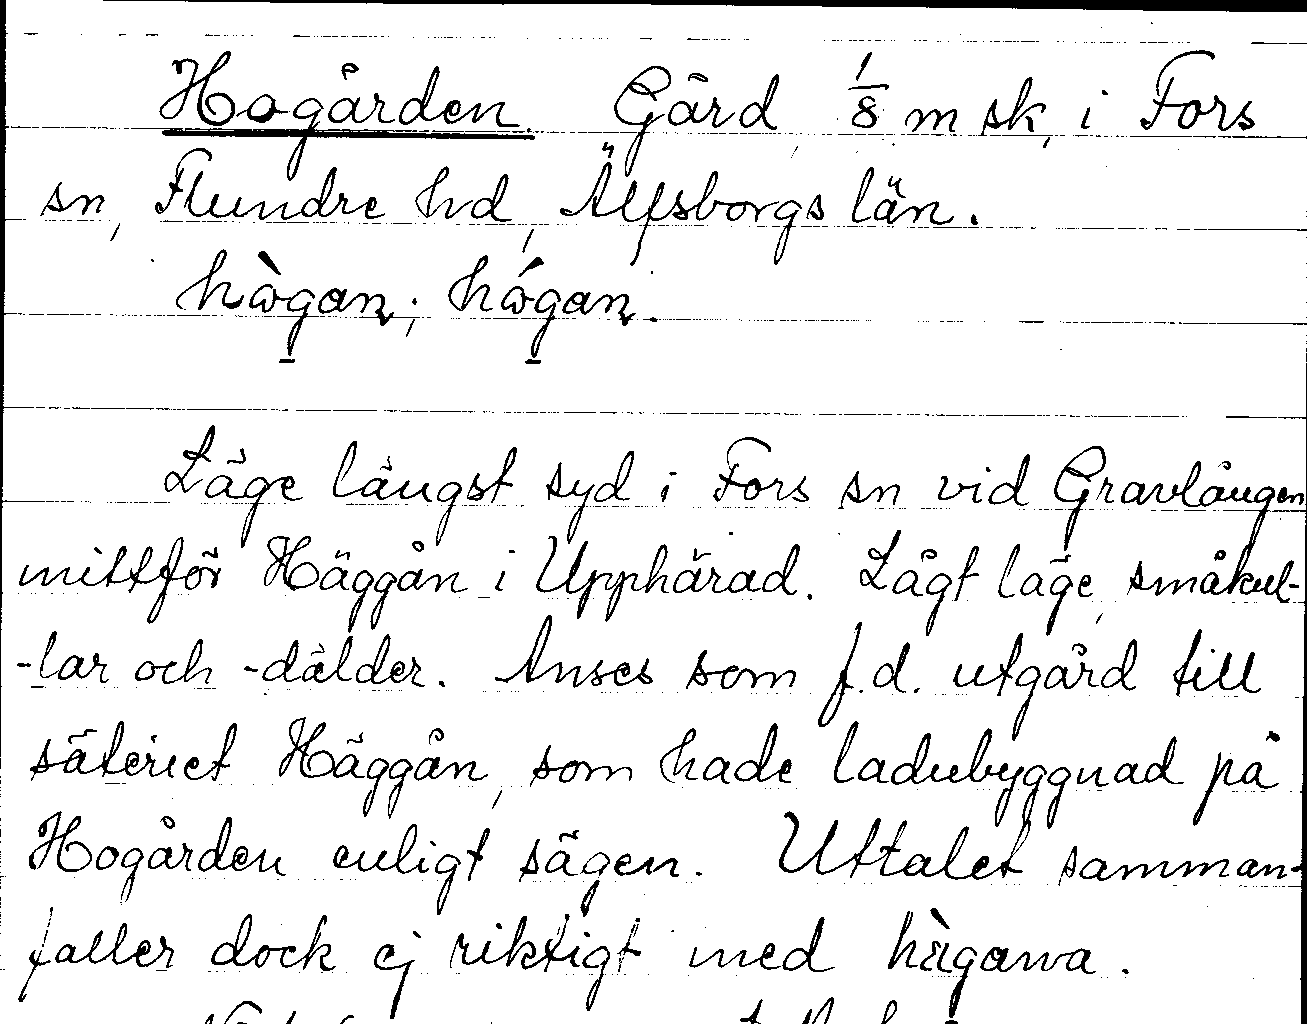 Hogården. Gård, 1/8 m sk, i Fors
sn, Flundre hd, Älfsborgs län.
hògan; hógan.
Läge längst syd i Fors sn vid Gravlången
mittför Häggån i Upphärad. Lågt läge, småkul-
-lar och -dälder. Anses som f.d. utgård till
säteriet Häggån, som hade ladubyggnad på
Hogården enligt sägen. Uttalet samman-
faller dock ej riktigt med